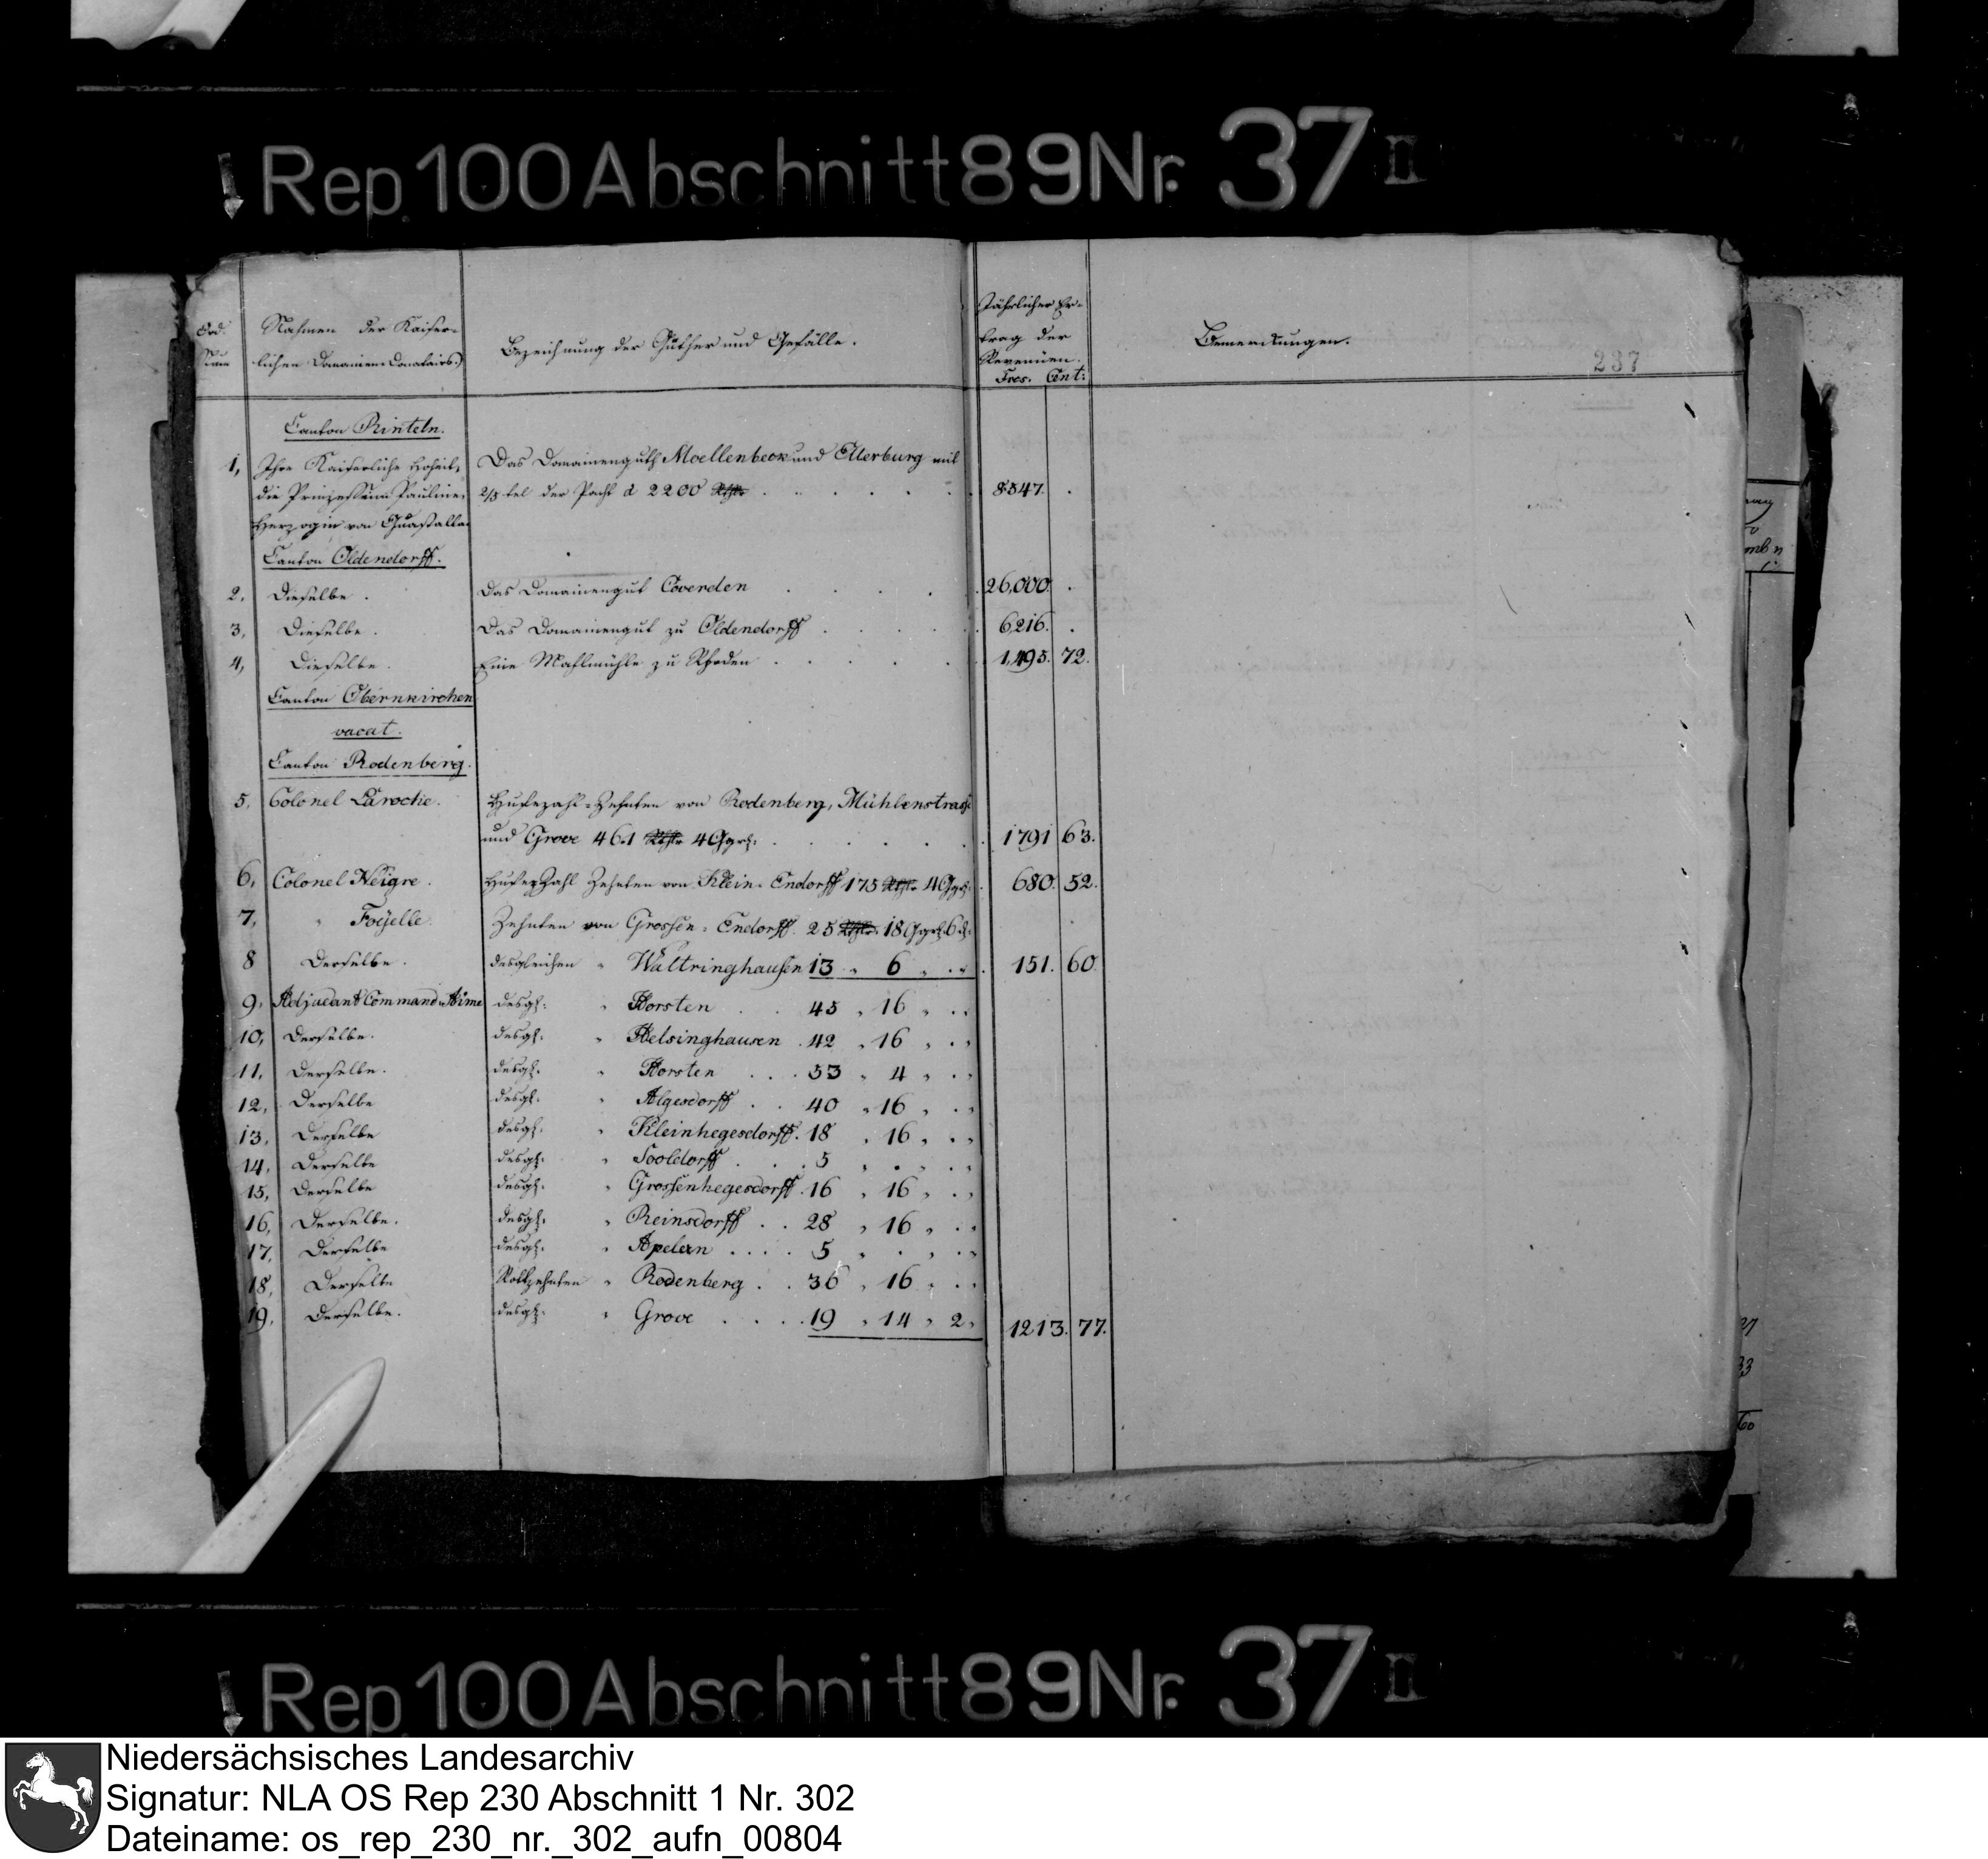 Rep. 100 Abschnitt 89 Nr. 37 II
Ord. Num
Nahmen der Kaiser-
lichen Domainen Donatairs.
Bezeichnung der Güther und Gefälle.
Jährlicher Er-
trag der
Revenüen.
Frcs. Cent:
Bemerkungen.
237
Canton Rinteln.
1, Ihre Kaiserliche Hoheit, Das Domainenguth Moellenbeck und Ellerburg mit
die Prinzessinn Pauline, 2/3 tel der Pacht à 2200 Rthlr 8547.
Herzogin von Guastalla
Canton Oldendorff.
2. Dieselbe. Das Domainengut Coverden 26,000.
3, Dieselbe. Das Domainengut zu Oldendorff 6,216.
4, Dieselbe. Eine Mahlmühle zu Rhoden 1,495. 72.
Canton Obernkirchen
vacat.
Canton Rodenberg.
5, Colonel Laroche. Hufezahl-Zehnten von Rodenberg, Mühlenstrasse
und Grove 461 Rthlr 4 Ggr. 1791 63.
6, Colonel Neigre. Hufezahl Zehnten von Klein-Endorff 175 Rthlr 4 Ggr. 680. 52.
7, " Foyelle. Zehnten von Grossen-Endorff. 25 Rthlr. 18 Ggr. 6 d.
8 Derselbe. desgleichen " Waltringhausen 13 " 6 " 151. 60
9, Adjudant Command. Aimé desgl. " Horsten 45 " 16 "
10, Derselbe. desgl. " Helsinghausen 42 " 16 "
11, Derselbe. desgl. " Horsten 53 " 4 "
12, Derselbe desgl. " Algesdorff 40 " 16 "
13, Derselbe desgl. " Kleinhegesdorff. 18 " 16 "
14, Derselbe desgl. " Sooldorff 5 "
15, Derselbe desgl. " Grossenhegesdorff. 16 " 16 "
16, Derselbe. desgl. " Reinsdorff 28 " 16 "
17, Derselbe desgl. " Apelern 5 "
18, Derselbe Rottzehnten " Rodenberg 36 " 16 "
19, Derselbe. desgl. " Grove 19 " 14 " 2 " 1213. 77.
Rep. 100 Abschnitt 89 Nr. 37 II
Niedersächsisches Landesarchiv
Signatur: NLA OS Rep 230 Abschnitt 1 Nr. 302
Dateiname: os_rep_230_nr._302_aufn_00804